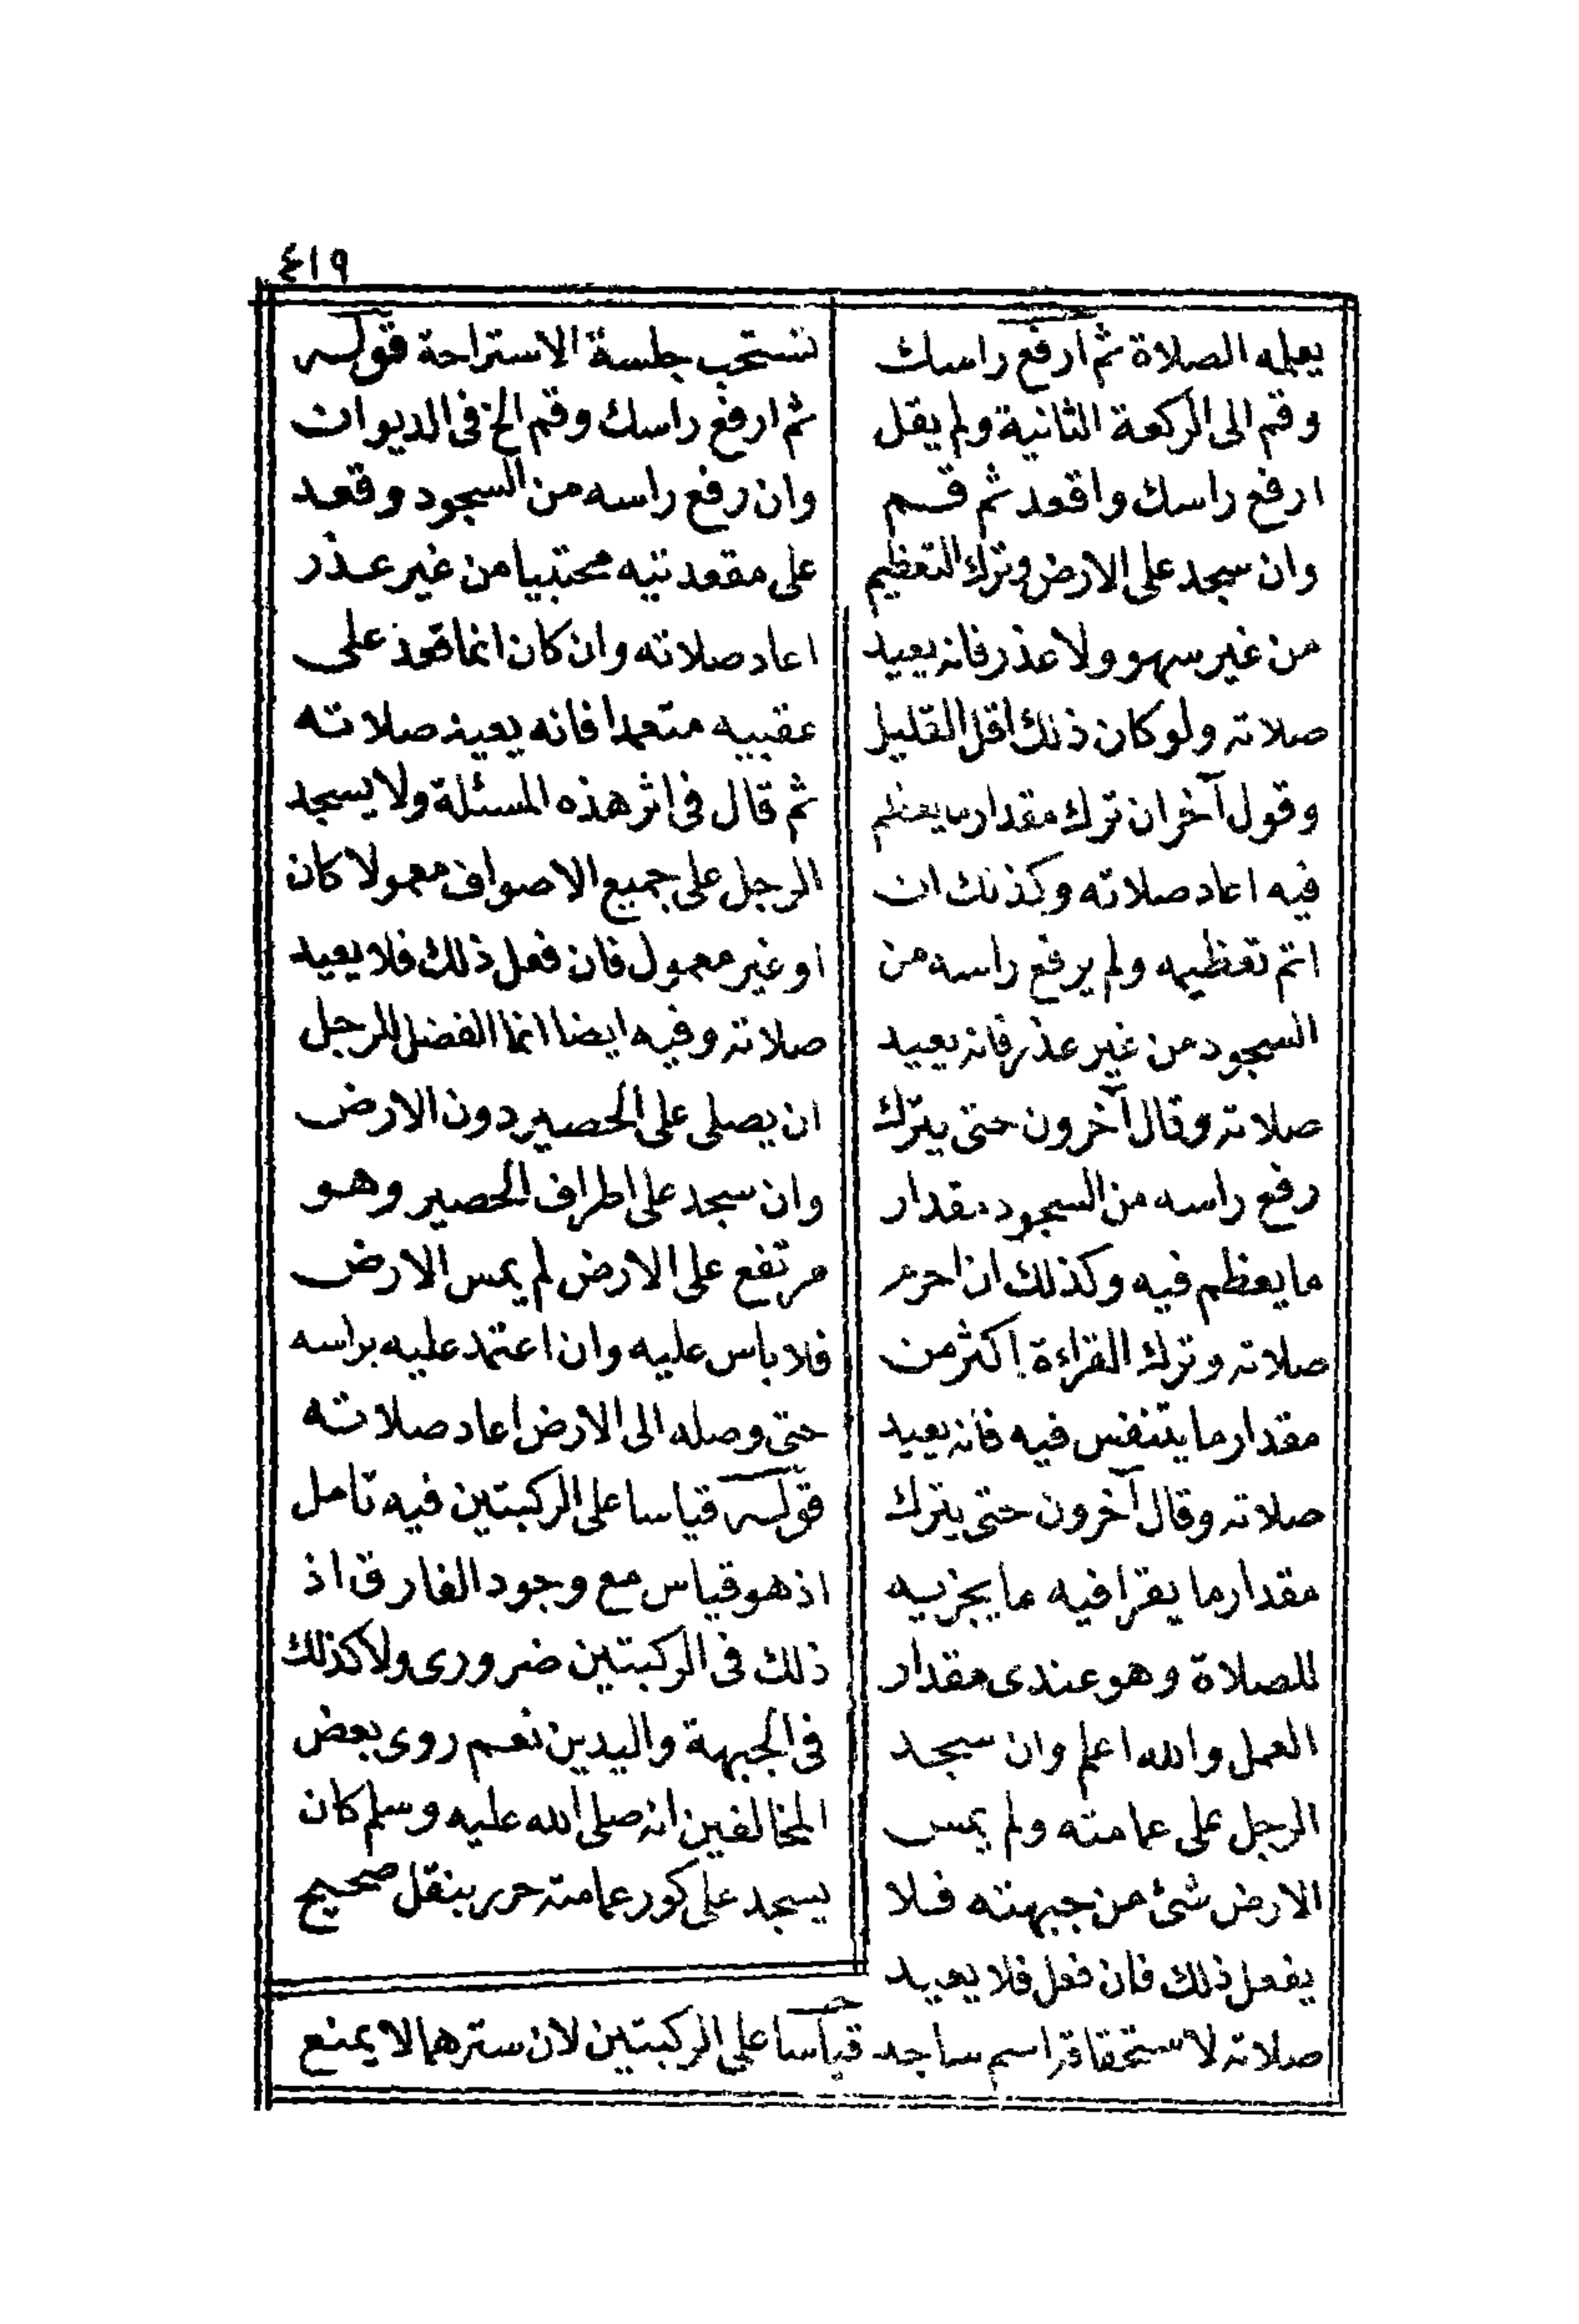 ٤١٩
يعلمه الصلاة ثم ارفع راسك
وقم الى الركعة الثانية ولم يقل
ارفع راسك واقعد ثم قم
وان سجد على الارض وترك التعظيم
من غير سهو ولا عذر فانه يعيد
صلاته ولو كان ذلك اقل القليل
وقول آخر ان ترك مقدار ما يعظم
فيه اعاد صلاته وكذلك ان
اتم تعظيمه ولم يرفع راسه من
السجود من غير عذر فانه يعيد
صلاته وقال آخرون حتى يترك
رفع راسه من السجود مقدار
ما يعظم فيه وكذلك ان احرم
صلاته وترك القراءة اكثر من
مقدار ما يتنفس فيه فانه يعيد
صلاته وقال آخرون حتى يترك
مقدار ما يقرا فيه ما يجزيه
للصلاة وهو عندى مقدار
العمل والله اعلم وان سجد
الرجل على عمامته ولم يمس
الارض شئ من جبهته فلا
يفعل ذلك فان فعل فلا يعيد
صلاته لاستحقاقه اسم ساجد قياسا على الركبتين لان سترهما لا يمنع
تستحب جلسة الاستراحة قوله
ثم ارفع راسك وقم الخ فى الديوان
وان رفع راسه من السجود وقعد
على مقعدتيه محتبيا من غير عذر
اعاد صلاته وان كان انما تحذ على
عقبيه متعمدا فانه يعيد صلاته
ثم قال فى اثر هذه المسئلة ولا يسجد
الرجل على جميع الاصواف معمولا كان
او غير معمول فان فعل ذلك فلا يعيد
صلاته وفيه ايضا انما الفضل للرجل
ان يصلى على الحصير دون الارض
وان سجد على اطراف الحصير وهو
مرتفع على الارض لم يمس الارض
فلا باس عليه وان اعتمد عليه براسه
حتى وصله الى الارض اعاد صلاته
قوله قياسا على الركبتين فيه تامل
اذ هو قياس مع وجود الفارق اذ
ذلك فى الركبتين ضرورى ولا كذلك
فى الجبهة واليدين نعم روى بعض
المخالفين انه صلى الله عليه وسلم كان
يسجد على كور عمامته حرر بنقل صحيح